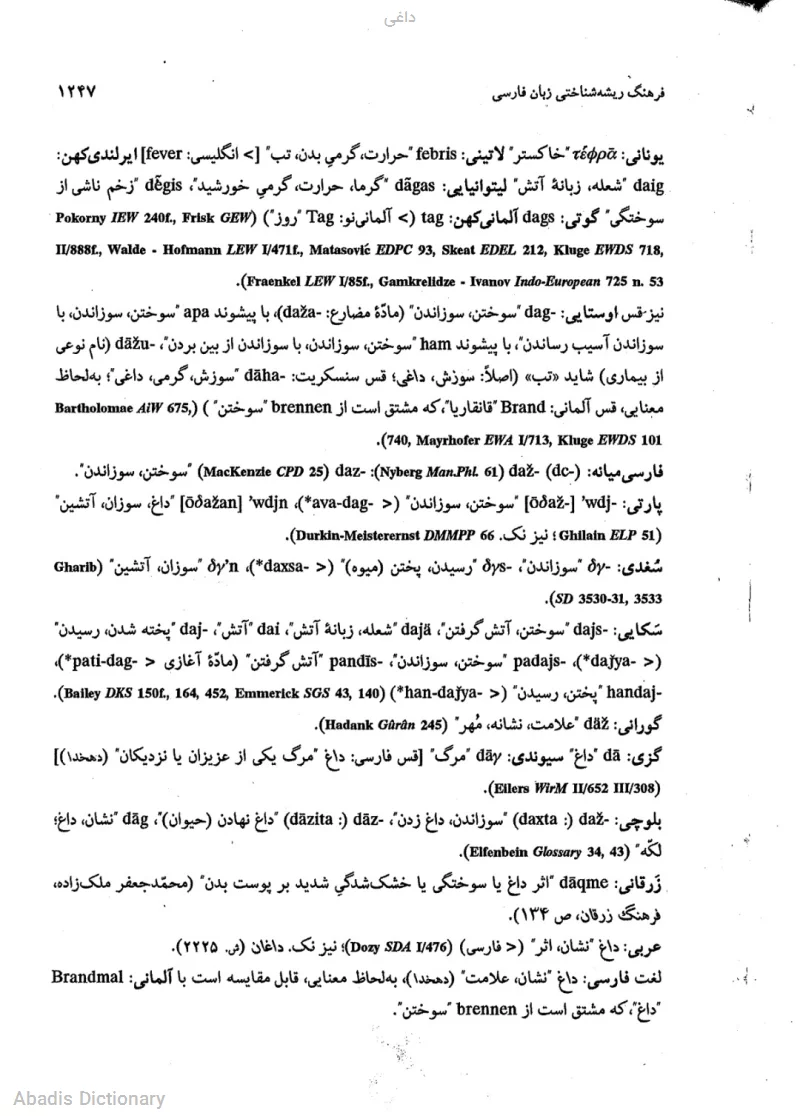 داغی
فرهنگ ریشه‌شناختی زبان فارسی ۱۲۴۷
یونانی: τέφρᾱ "خاکستر" لاتینی: febris "حرارت، گرمیِ بدن، تب" [> انگلیسی: fever] ایرلندی‌کهن:
daig "شعله، زبانهٔ آتش" لیتوانیایی: dãgas "گرما، حرارت، گرمیِ خورشید"، dẽgis "زخم ناشی از
سوختگی" گوتی: dags آلمانی‌کهن: tag (> آلمانی‌نو: Tag "روز") (Pokorny IEW 240f., Frisk GEW
II/888f., Walde - Hofmann LEW I/471f., Matasović EDPC 93, Skeat EDEL 212, Kluge EWDS 718,
Fraenkel LEW I/85f., Gamkrelidze - Ivanov Indo-European 725 n. 53).
نیز قس اوستایی: dag- "سوختن، سوزاندن" (مادّهٔ مضارع: daža-)، با پیشوند apa "سوختن، سوزاندن، با
سوزاندن آسیب رساندن"، با پیشوند ham "سوختن، سوزاندن، با سوزاندن از بین بردن"، dāžu- (نام نوعی
از بیماری) شاید «تب» (اصلاً: سوزش، داغی؛ قس سنسکریت: dāha- "سوزش، گرمی، داغی"؛ به‌لحاظ
معنایی، قس آلمانی: Brand "قانقاریا"، که مشتق است از brennen "سوختن") (Bartholomae AiW 675,
740, Mayrhofer EWA I/713, Kluge EWDS 101).
فارسی‌میانه: daž- (dc-) (Nyberg Man.Phl. 61): daz- (MacKenzie CPD 25) "سوختن، سوزاندن".
پارتی: 'wdj- [ōδaž-] "سوختن، سوزاندن" (< *ava-dag-)، 'wdjn [ōδažan] "داغ، سوزان، آتشین"
(Ghilain ELP 51؛ نیز نک. Durkin-Meisterernst DMMPP 66).
سُغدی: δγ- "سوزاندن"، δγs- "رسیدن، پختن (میوه)" (< *daxsa-)، δγ'n "سوزان، آتشین" (Gharib
SD 3530-31, 3533).
سَکایی: dajs- "سوختن، آتش گرفتن"، dajä "شعله، زبانهٔ آتش"، dai "آتش"، daj- "پخته شدن، رسیدن"
(< *daǰya-)، padajs- "سوختن، سوزاندن"، pandīs- "آتش گرفتن" (مادّهٔ آغازی < *pati-dag-)،
handaj- "پختن، رسیدن" (< *han-daǰya-) (Bailey DKS 150f., 164, 452, Emmerick SGS 43, 140).
گورانی: däž "علامت، نشانه، مُهر" (Hadank Gûrân 245).
گزی: dā "داغ" سیوندی: dāy "مرگ" [قس فارسی: داغ "مرگ یکی از عزیزان یا نزدیکان" (دهخدا)]
(Eilers WirM II/652 III/308).
بلوچی: daž- (daxta :) "سوزاندن، داغ زدن"، dāz- (dāzita :) "داغ نهادن (حیوان)"، dāg "نشان، داغ؛
لکّه" (Elfenbein Glossary 34, 43).
زَرقانی: dāqme "اثر داغ یا سوختگی یا خشک‌شدگی شدید بر پوست بدن" (محمّدجعفر ملک‌زاده،
فرهنگ زرقان، ص ۱۳۴).
عربی: داغ "نشان، اثر" (< فارسی) (Dozy SDA I/476)؛ نیز نک. داغان (ش. ۲۲۲۵).
لغت فارسی: داغ "نشان، علامت" (دهخدا)، به‌لحاظ معنایی، قابل مقایسه است با آلمانی: Brandmal
"داغ"، که مشتق است از brennen "سوختن".
Abadis Dictionary